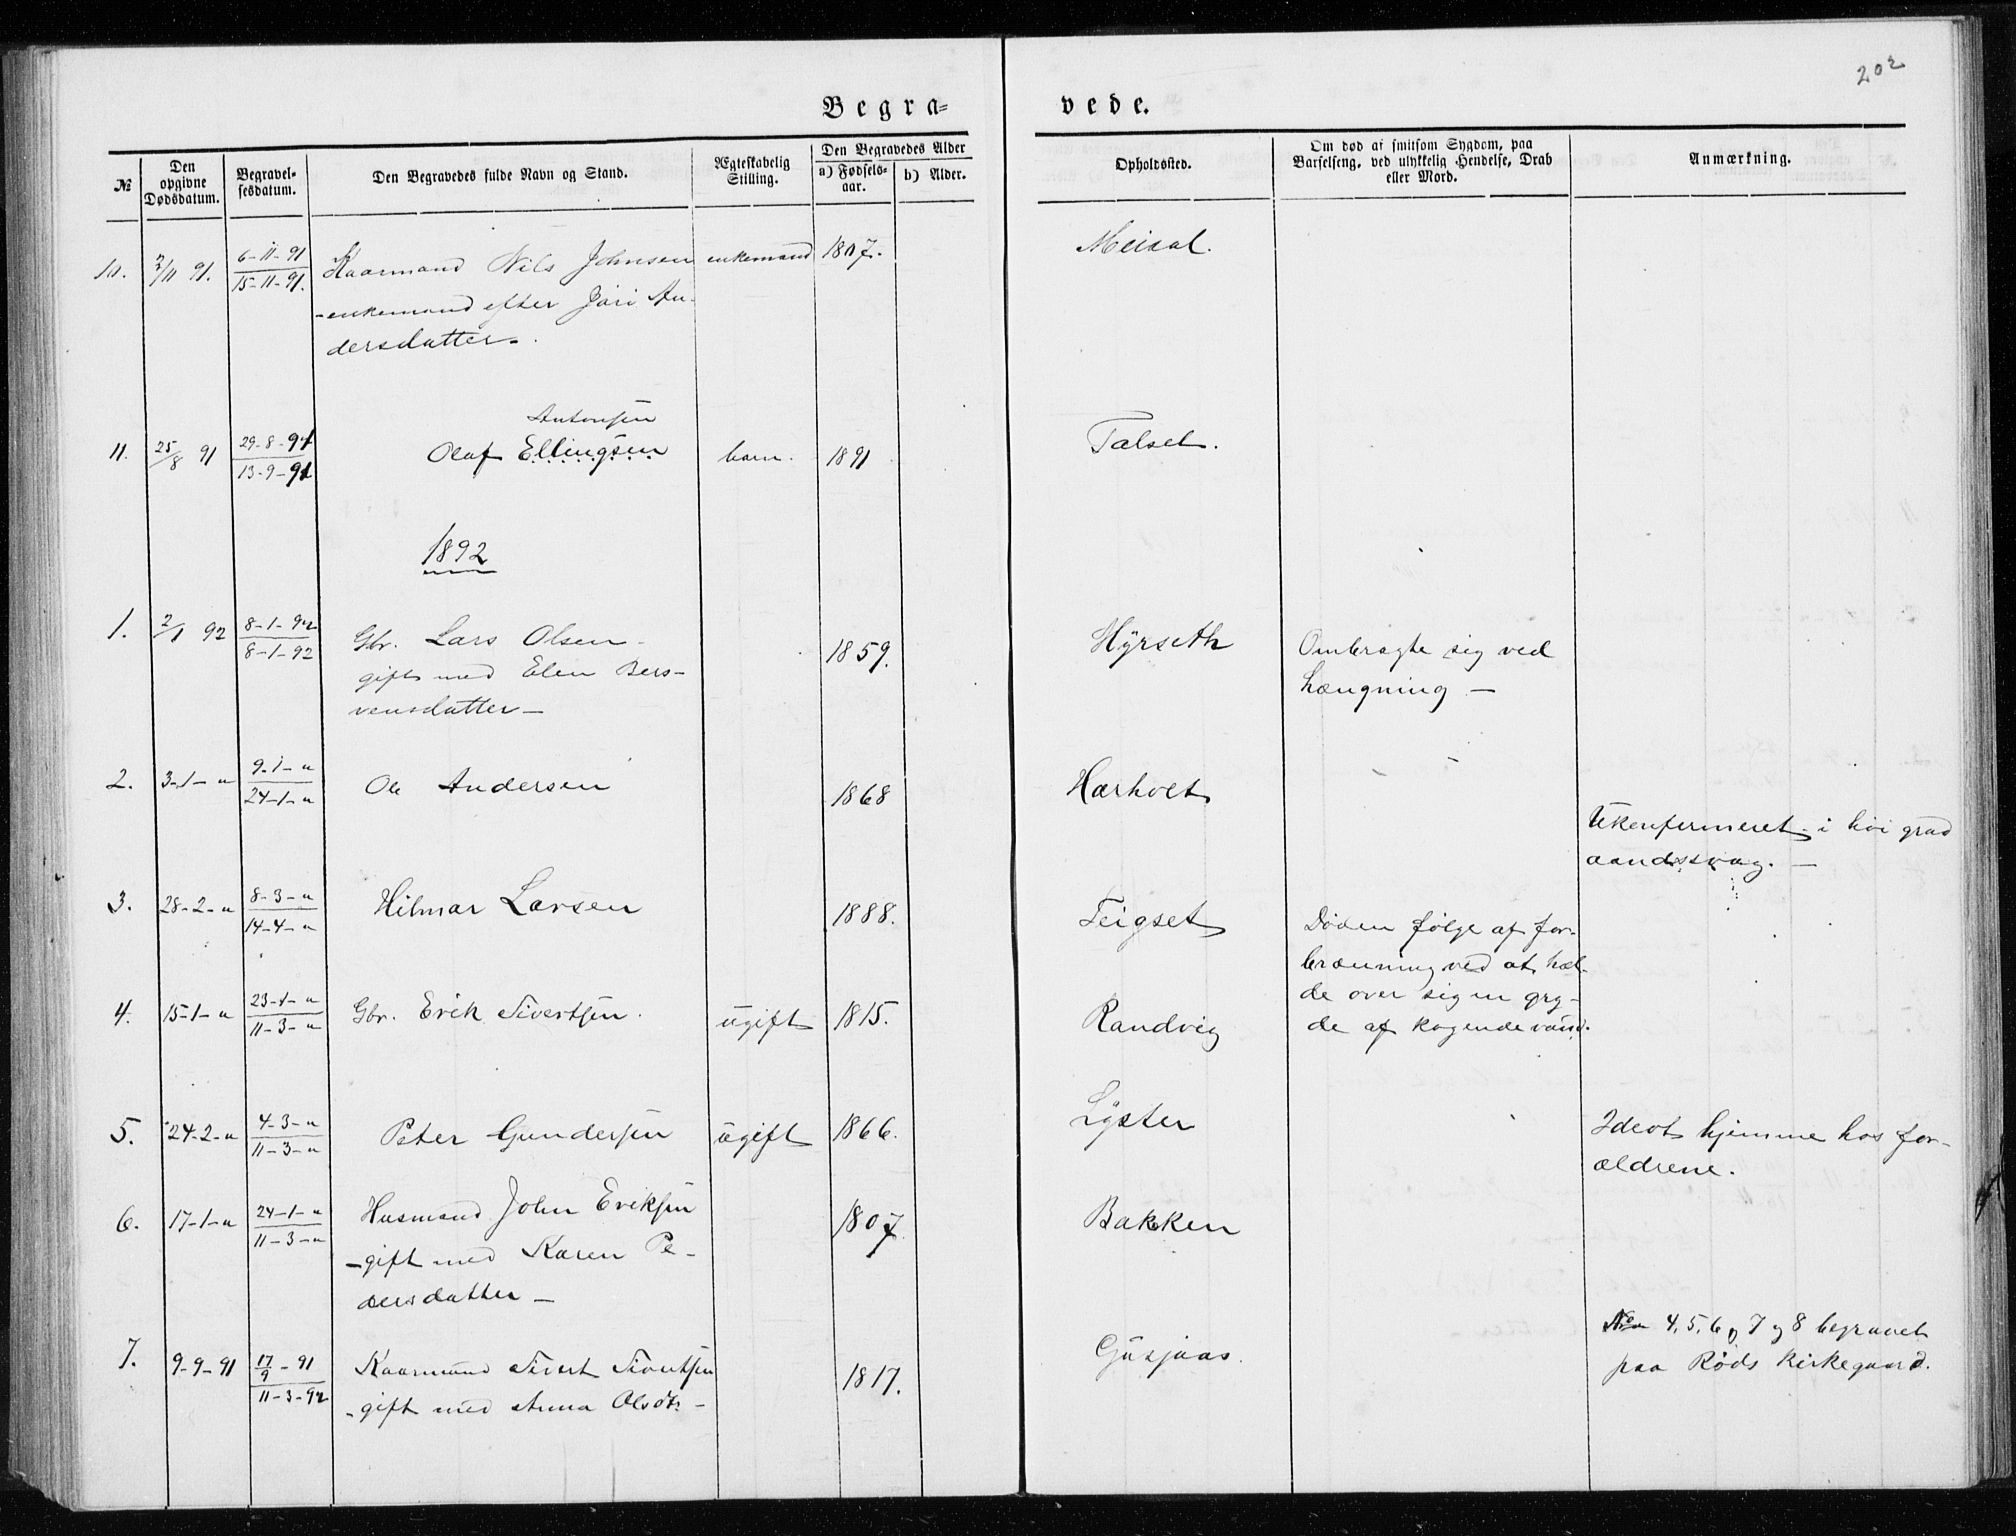 202
Begra= vede.
№ Den opgivne Dødsdatum. Begravelsesdatum. Den Begravedes fulde Navn og Stand. Ægteskabelig Stilling. Den Begravedes Alder a) Fødselsaar. b) Alder. Opholdssted. Om død af smitsom Sygdom, paa Barselseng, ved ulykkelig Hendelse, Drab eller Mord. Anmærkning.
10. 2/11 91. 6-11-91 15-11-91. Kaarmand Nils Johnsen enkemand 1807. Meisal.
-enkemand efter Jari An-
dersdatter.
Antonsen
11. 25/8 91 29-8-91 13-9-91 Olaf Ellingsen barn. 1891 Talset.
1892
1. 2/1 92 8-1-92 8-1-92 Gbr. Lars Olsen 1859. Hÿrseth Ombragte sig ved
gift med Elen Bers- hængning —
vensdatter —
2. 3-1-" 9-1-" 24-1-" Ole Andersen 1868 Harholt
Ukonfirmeret i høi grad
aandssvag. —
3. 28-2-" 8-3-" 14-4-" Hilmar Larsen 1888. Teigset Døden følge af for-
brænning ved at hæl-
de over sig en gry-
de af kogende vand.
4. 15-1-" 23-1-" 11-3-" Gbr. Erik Sivertsen. ugift 1815. Randvig
5. 24-2-" 4-3-" 11-3-" Peter Gundersen ugift 1866. Lÿster Ideot hjemme hos for-
ældrene.
6. 17-1-" 24-1-" 11-3-" Husmand John Eriksen 1807 Bakken
-gift med Karen Pe-
dersdatter —
7. 9-9-91 17/9-91 11-3-92 Kaarmand Sivert Sivertsen 1817. Gusjaas.
-gift med Anna Olsdt. -
No 4, 5, 6, 7 og 8 begravet
paa Røds kirkegaard.